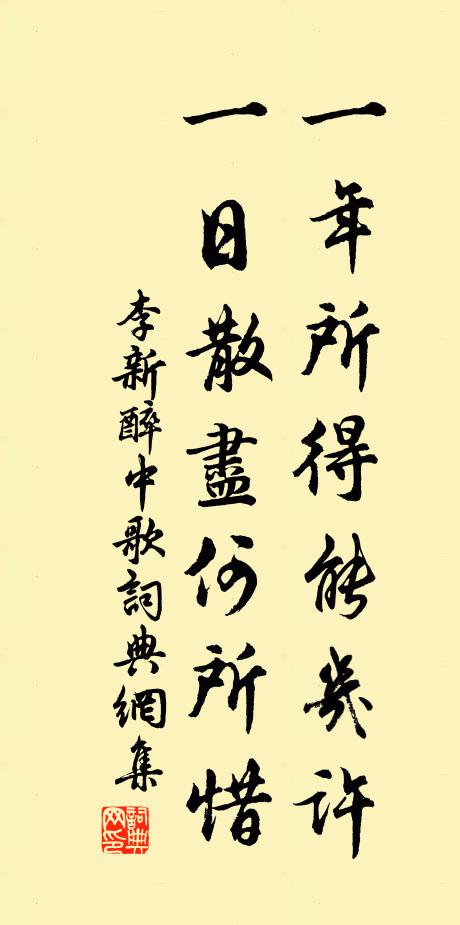 一年所得能幾許
一日散盡何所惜
李新醉中歌詞典網集
詞典网印